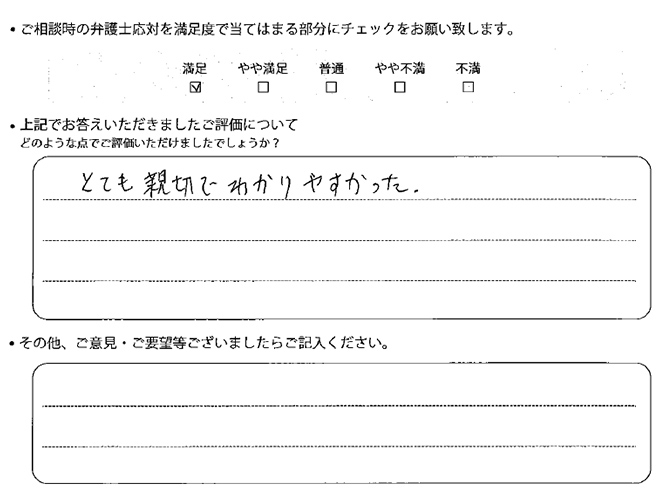 ・ご相談時の弁護士応対を満足度で当てはまる部分にチェックをお願い致します。
満足 やや満足 普通 やや不満 不満
☑ ☐ ☐ ☐ ☐
・上記でお答えいただきましたご評価について
どのような点でご評価いただけましたでしょうか？
とても親切でわかりやすかった.
・その他、ご意見・ご要望等ございましたらご記入ください。